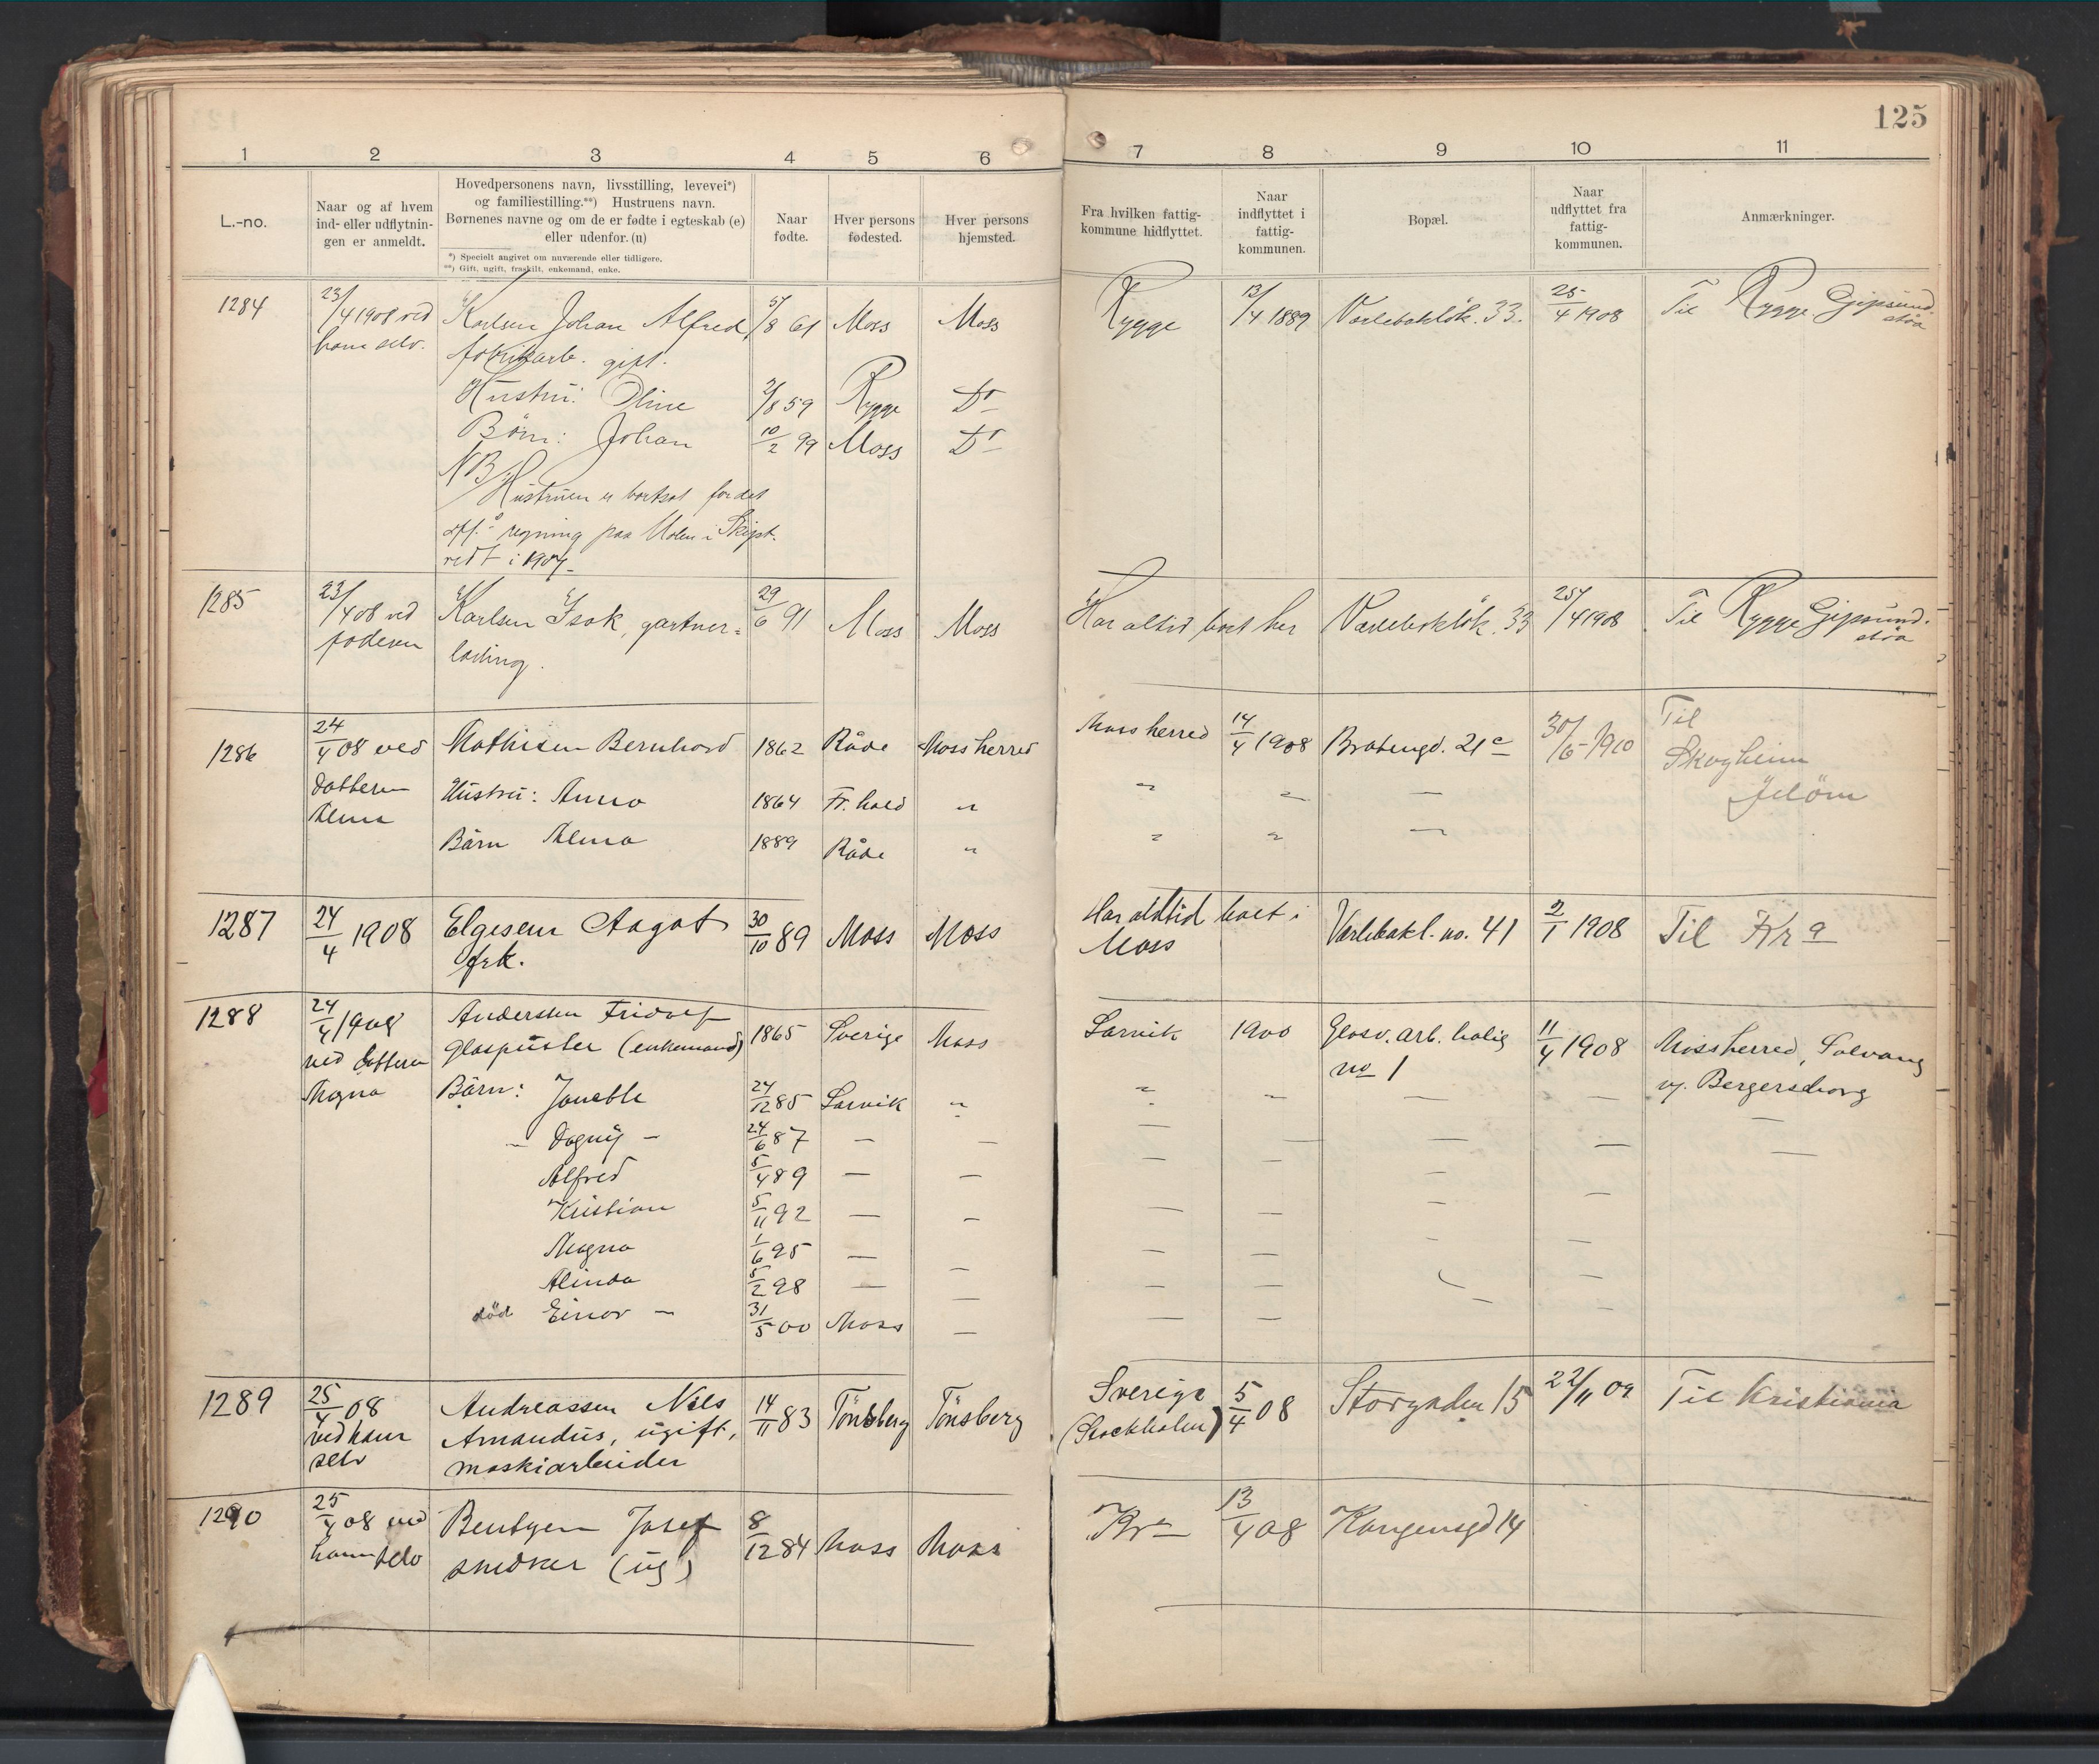 125
1 2 3 4 5 6 7 8 9 10 11
L.-no.
Naar og af hvem
ind- eller udflytnin-
gen er anmeldt.
Hovedpersonens navn, livsstilling, levevei*)
og familiestilling.**) Hustruens navn.
Børnenes navne og om de er fødte i egteskab (e)
eller udenfor. (u)
*) Specielt angivet om nuværende eller tidligere.
**) Gift, ugift, fraskilt, enkemand, enke.
Naar
fødte.
Hver persons
fødested.
Hver persons
hjemsted.
Fra hvilken fattig-
kommune hidflyttet.
Naar
indflyttet i
fattig-
kommunen.
Bopæl.
Naar
udflyttet fra
fattig-
kommunen.
Anmærkninger.
1284 23/4 1908 ved Karlsen Johan Alfred 5/8 61 Moss Moss Rygge 13/4 1889 Varlebakløk. 33. 25/4 1908 Til Rygge Gipsund.
ham selv. fabrikarb. gift. støa
Hustru: Oline 2/8 59 Rygge Do
Børn: Johan 10/2 99 Moss Do
NB.
Hustruen er bortsat for det
off. regning paa i Skipt-
vedt i 1907.
1285 23/4 08 ved Karlsen Isak, gartner= 29/6 91 Moss Moss Har altid boet her Varlebakløk. 33 25/4 1908 Til Rygge Gipsund.
faderen lærling. støa
1286 24/4 08 ved Mathisen Bernhard 1862 Råde Moss herred Moss herred 14/4 1908 Bratengd. 21c 30/6-1910 Til
datteren Hustru: Anna 1864 Fr.hald " " " — Skogheim
Alma Børn Alma 1889 Råde " " " — Jeløen
1287 24/4 1908 Elgesem Aagot 30/10 89 Moss Moss Har altid boet i Varlebakl. no. 41 2/1 1908 Til Kra
frk. Moss
1288 24/4 1908 Andersen Fridolf 1865 Sverige Moss Larvik 1900 Glasv. arb. bolig 11/4 1908 Mossherred, Solvang
ved datteren Glaspuster (enkemand) no 1 v. Bergersborg
Magna Børn: Janette 24/12 85 Larvik " " — — — —
— Dagny — 24/6 87 — — — — — — —
Alfred 5/4 89 — — — — — —
Kristian 5/11 92 — — — — — —
Magna 1/6 95 — — — — — —
Alinda 5/2 98 — — — — — —
død Einar — 31/5 00 Moss — — — — —
1289 25/4 08 Andreassen Nils 14/11 83 Tönsberg Tönsberg Sverige 5/4 08 Storgaden 15 22/11 09 Til Kristiania
ved ham Amandus, ugift, (Stockholm)
selv maskiarbeider
1290 25/4 08 ved Bentzen Josef 8/12 84 Moss Moss Kra 13/4 08 Kongensgd 14
ham selv snedker (ug)